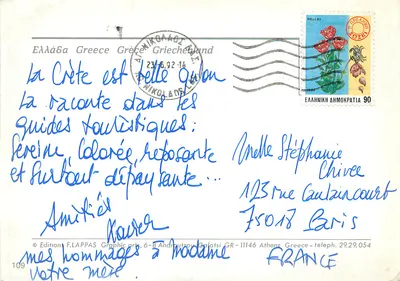 Ελλάδα Greece Grèce Griechenland
ΑΓ. ΝΙΚΟΛΑΟΣ
23.6.92
ΕΛΛΗΝΙΚΗ ΔΗΜΟΚΡΑΤΙΑ 90
La Crète est belle qu'on
la raconte dans les
guides touristiques:
Sereine, Colorée, reposante
et surtout dépaysante...
Amitiés
Xavier
mes hommages à Madame
votre mère.
Melle Stéphanie
Chivee
123 rue Caulaincourt
75018 Paris
FRANCE
© Editions F. LAPPAS Graphic arts, 6-8 GR - 11146 Athens, Greece - teleph. 29.29.054
109